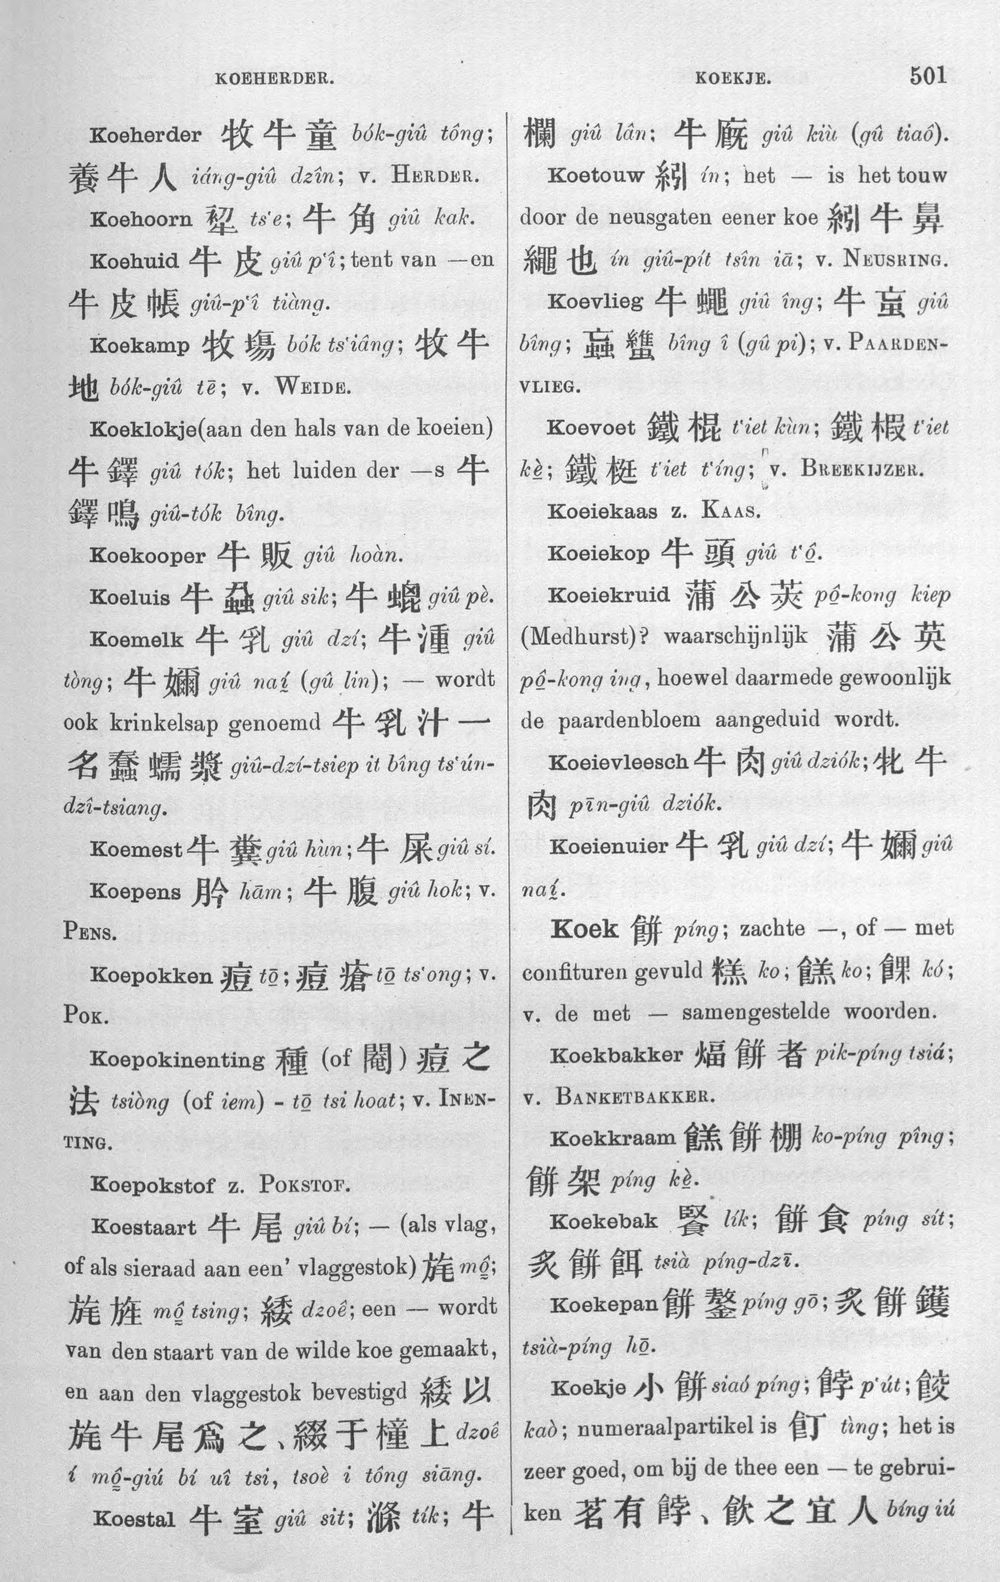 KOEHERDER.
KOEKJE. 501
Koeherder 牧牛童 bók-giû tông;
養牛人 iáng-giû dzîn; v. HERDER.
Koehoorn 犂 ts‘e; 牛角 giû kak.
Koehuid 牛皮 giû p‘î; tent van —en
牛皮帳 giû-p‘î tiàng.
Koekamp 牧塲 bók ts‘iâng; 牧牛
地 bók-giû tē; v. WEIDE.
Koeklokje (aan den hals van de koeien)
牛鐸 giû tók; het luiden der —s 牛
鐸鳴 giû-tók bîng.
Koekooper 牛販 giû hoàn.
Koeluis 牛蝨 giû sik; 牛螕 giû pè.
Koemelk 牛乳 giû dzí; 牛湩 giû
tòng; 牛嬭 giû naí (gû lin); — wordt
ook krinkelsap genoemd 牛乳汁一
名蠢蠕漿 giû-dzí-tsiep it bîng ts‘ún-
dzî-tsiang.
Koemest 牛糞 giû hùn; 牛屎 giû sí.
Koepens 肣 hām; 牛腹 giû hok; v.
PENS.
Koepokken 痘 tō; 痘瘡 tō ts‘ong; v.
POK.
Koepokinenting 種 (of 閹) 痘之
法 tsiòng (of iem) - tō tsi hoat; v. INEN-
TING.
Koepokstof z. POKSTOF.
Koestaart 牛尾 giû bí; — (als vlag,
of als sieraad aan een’ vlaggestok) 旄 mô;
旄旌 mô tsing; 緌 dzoê; een — wordt
van den staart van de wilde koe gemaakt,
en aan den vlaggestok bevestigd 緌以
旄牛尾爲之、綴于橦上 dzoê
í mô-giú bí uî tsi, tsoè i tông siāng.
Koestal 牛室 giû sit; 滌 tík; 牛
欄 giû lân; 牛廐 giû kiù (gû tiaô).
Koetouw 紖 ín; het — is het touw
door de neusgaten eener koe 紖牛鼻
繩也 ín giû-pít tsîn iā; v. NEUSRING.
Koevlieg 牛蠅 giû îng; 牛蝱 giû
bîng; 蝱 bîng î (gû pi); v. PAARDEN-
VLIEG.
Koevoet 鐵棍 t‘iet kùn; 鐵椵 t‘iet
kè; 鐵梃 t‘iet t‘íng; v. BREEKIJZER.
Koeiekaas z. KAAS.
Koeiekop 牛頭 giû t‘ô.
Koeiekruid 蒲公莢 pô-kong kiep
(Medhurst)? waarschijnlijk 蒲公英
pô-kong ing, hoewel daarmede gewoonlijk
de paardenbloem aangeduid wordt.
Koeievleesch 牛肉 giû dziók; 牝牛
肉 pīn-giû dziók.
Koeienuier 牛乳 giû dzí; 牛嬭 giû
naí.
Koek 餅 píng; zachte —, of — met
confituren gevuld 糕 ko; 餻 ko; 餜 kó;
v. de met — samengestelde woorden.
Koekbakker 煏餅者 pik-píng tsiá;
v. BANKETBAKKER.
Koekkraam 餻餅棚 ko-píng pîng;
餅架 píng kè.
Koekebak lík; 餅食 píng sít;
炙餅餌 tsià píng-dzī.
Koekepan 餅鏊 píng gō; 炙餅鑊
tsià-píng hō.
Koekje 小餅 siaó píng; 餑 p‘út; 餃
kaò; numeraalpartikel is 飣 tìng; het is
zeer goed, om bij de thee een — te gebrui-
ken 茗有餑、飲之宜人 bíng iú